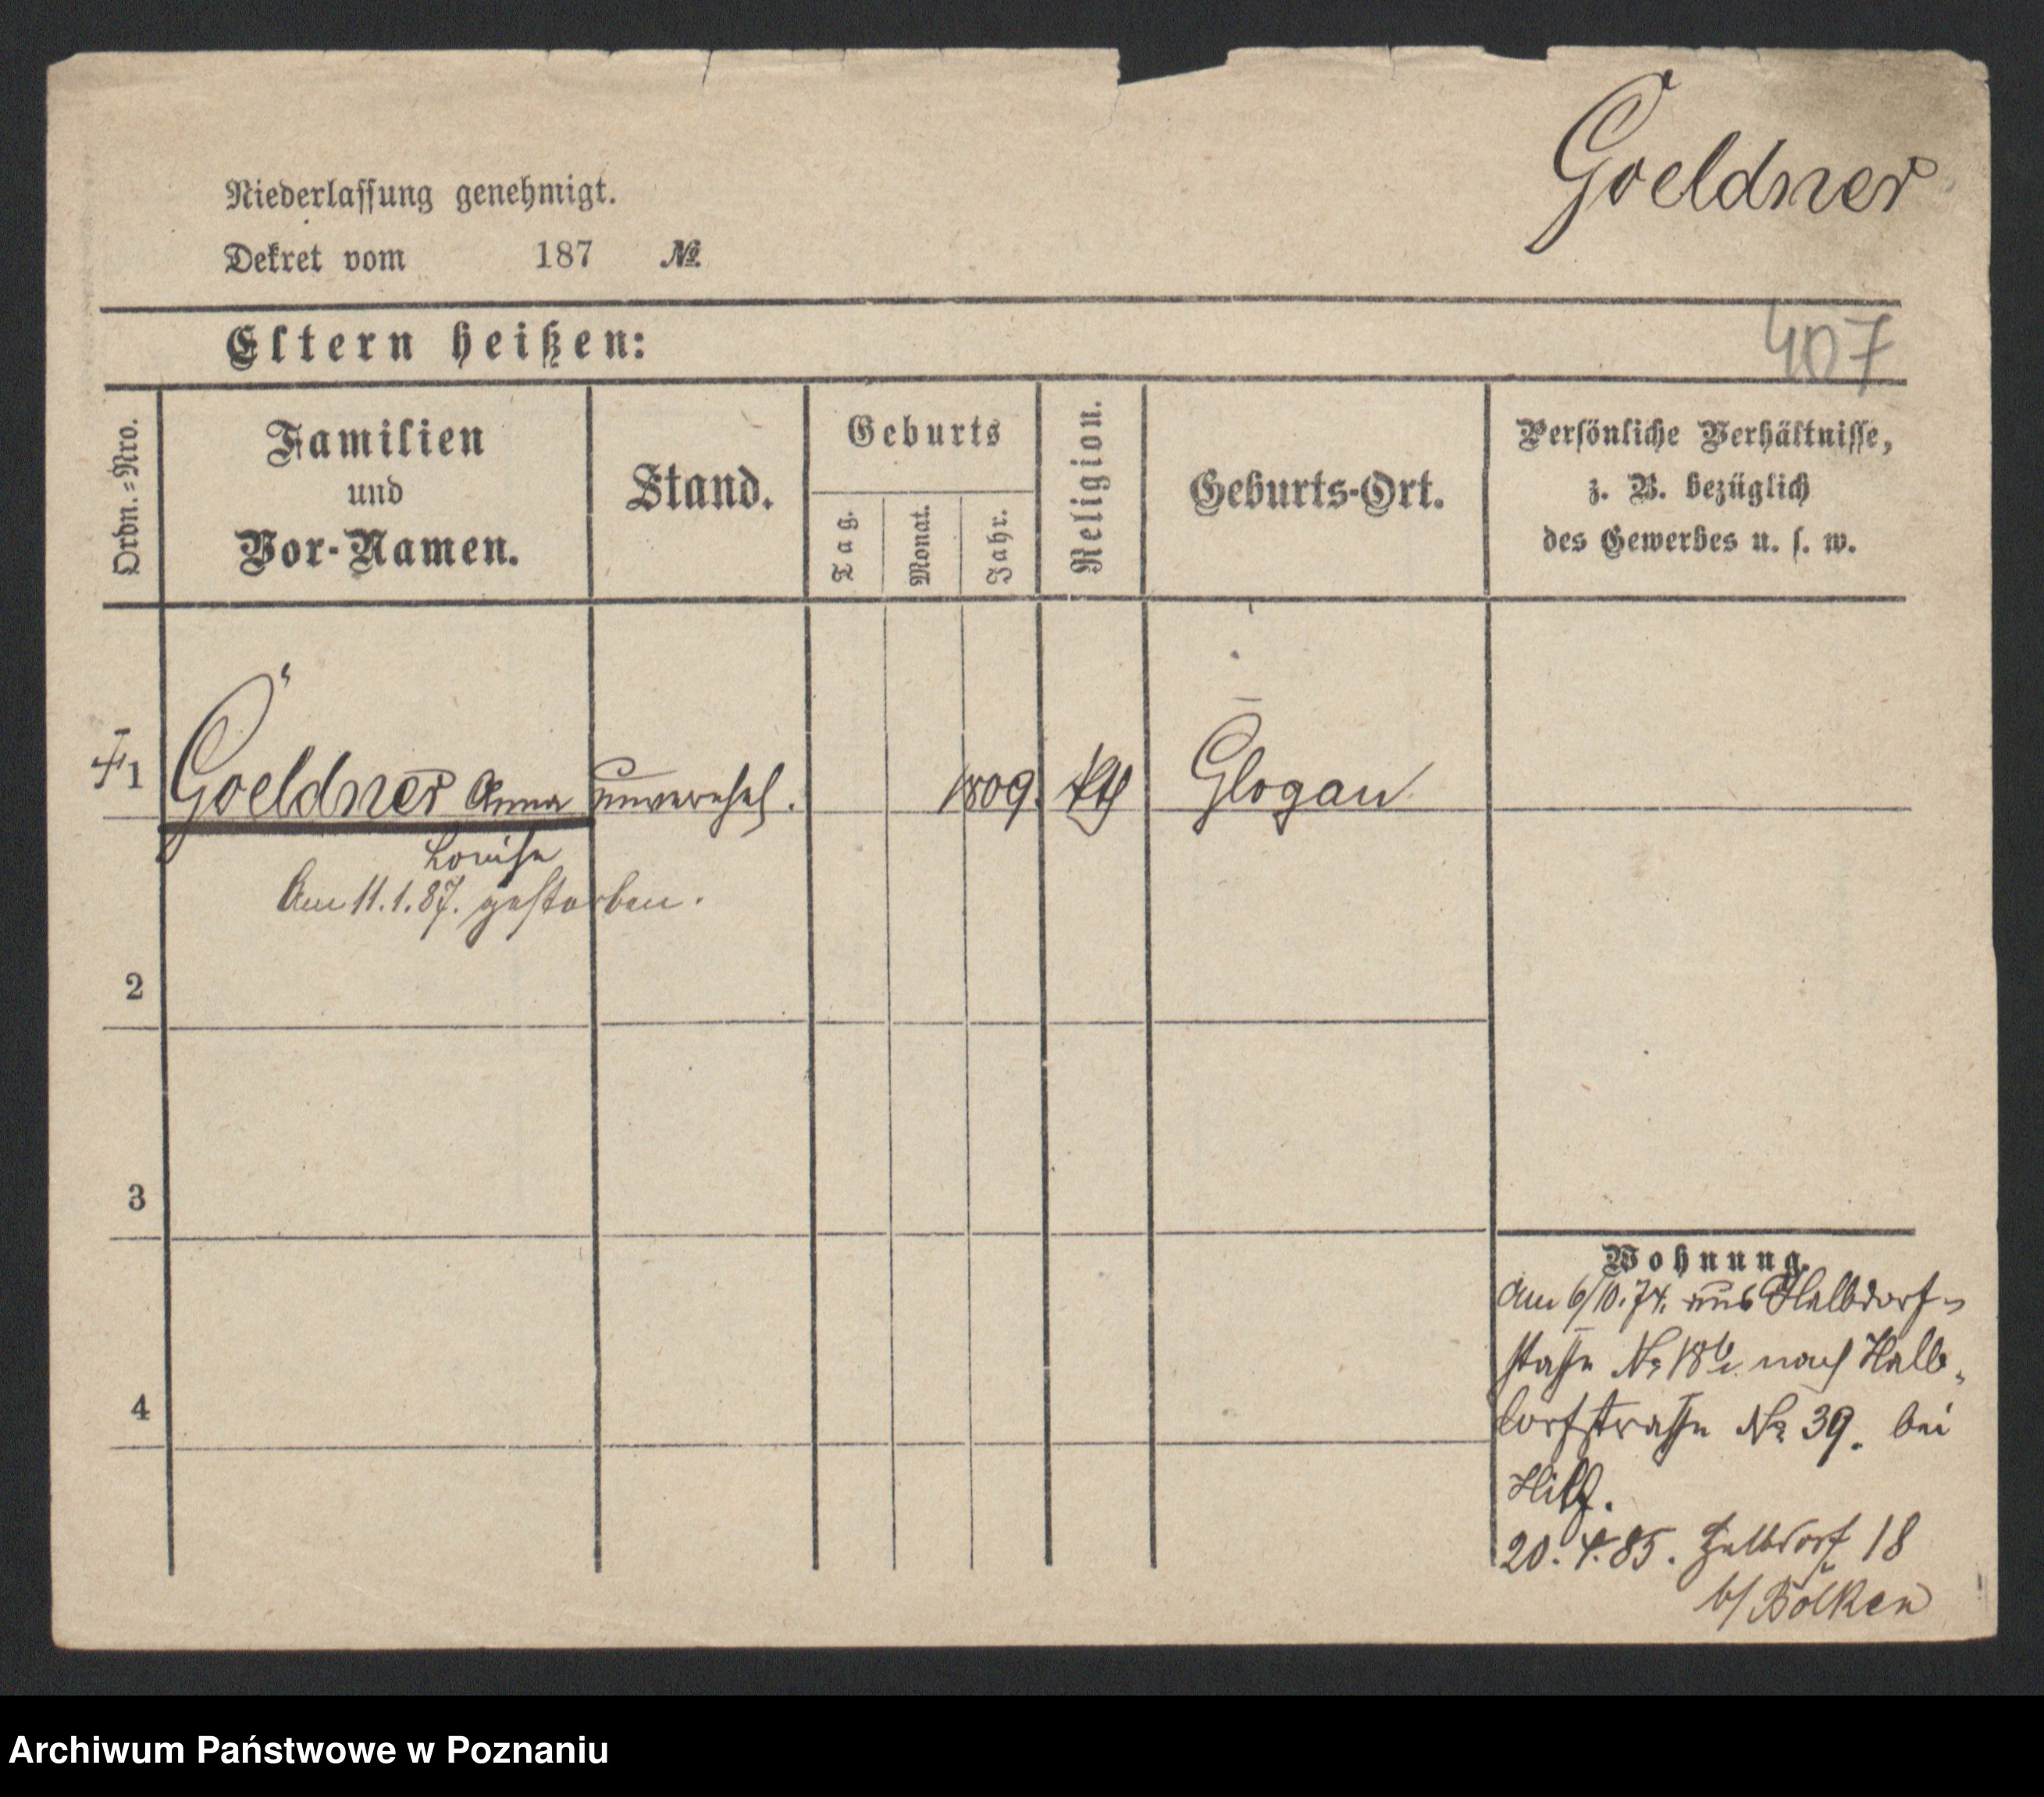 Goeldner
Niederlassung genehmigt.
Dekret vom 187 №
Eltern heißen:
407
Ordn.=Nro.
Familien
und
Vor-Namen.
Stand.
Geburts
Tag.
Monat.
Jahr.
Religion.
Geburts-Ort.
Persönliche Verhältnisse,
z. B. bezüglich
des Gewerbes u. s. w.
1 Goeldner Anna unverehel. 1809. Glogau
Louise
Am 11.1.87. gestorben.
2
3
4
Wohnung.
Am 6/10.74. aus Halbdorf-
straße No 18 nach Halb-
dorfstraße No 39. bei
20.4.85. Halbdorf 18
b/ Bölken
Archiwum Państwowe w Poznaniu